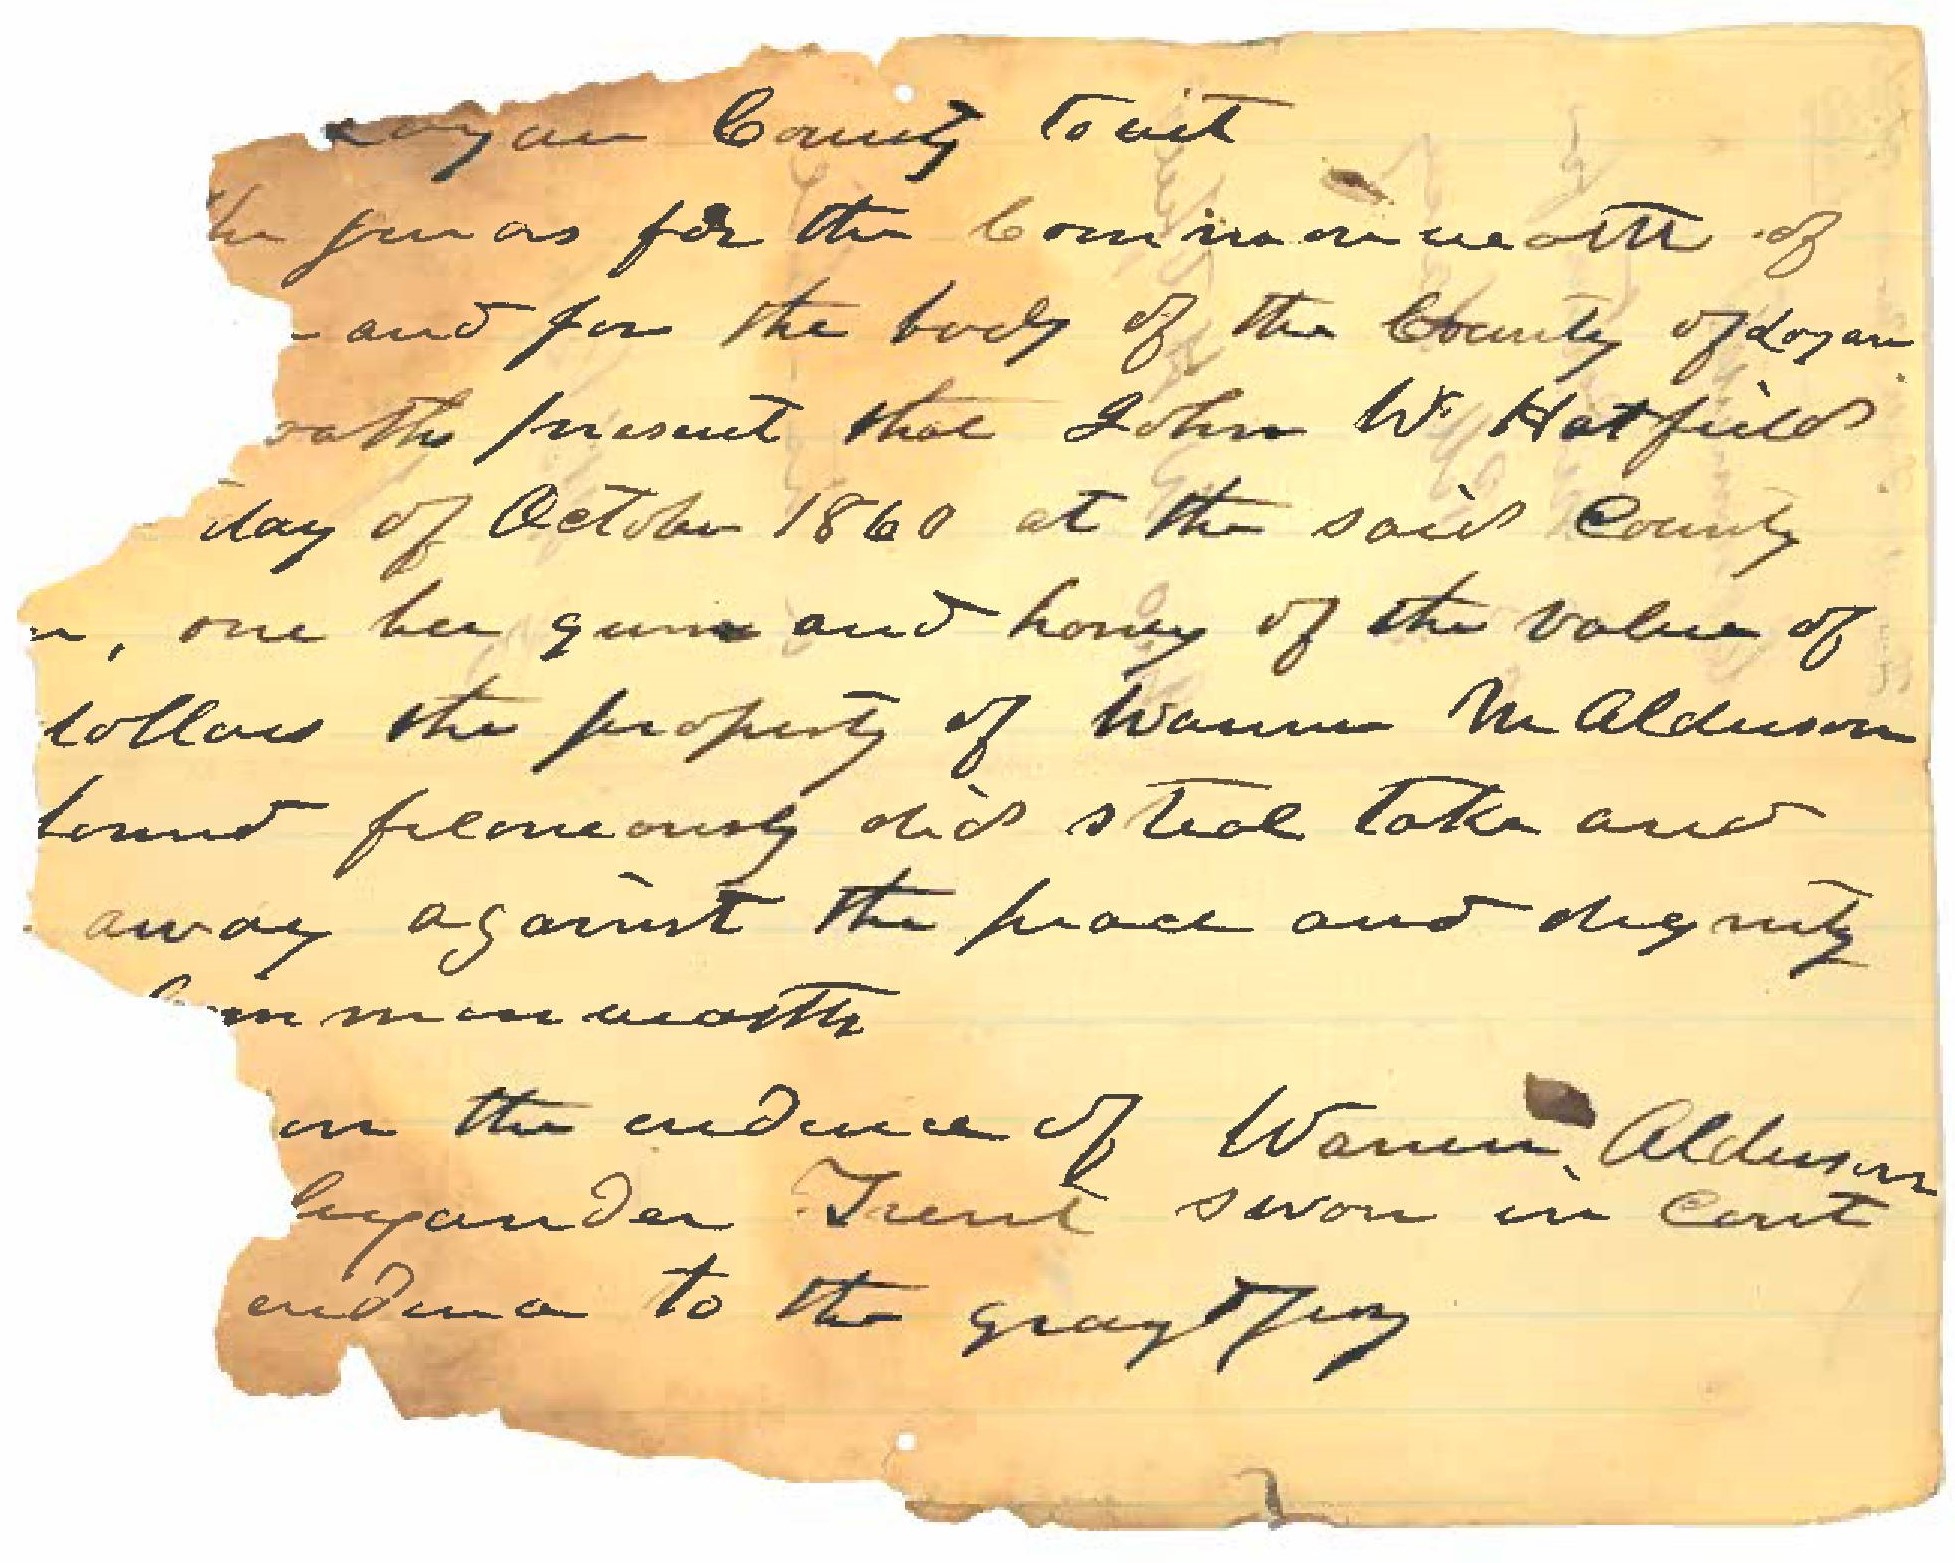 Logan County Towit
the jurors for the Commonwealth of
and for the body of the County of Logan
oaths present that John W. Hatfield
day of October 1860 at the said County
n, one bee gum and honey of the value of
dollars the property of Warren M Alderson
found feloneously did steal take and
away against the peace and dignity
Commonwealth
on the evidence of Warren Alderson
Trent sworn in Court
evidence to the grand jury